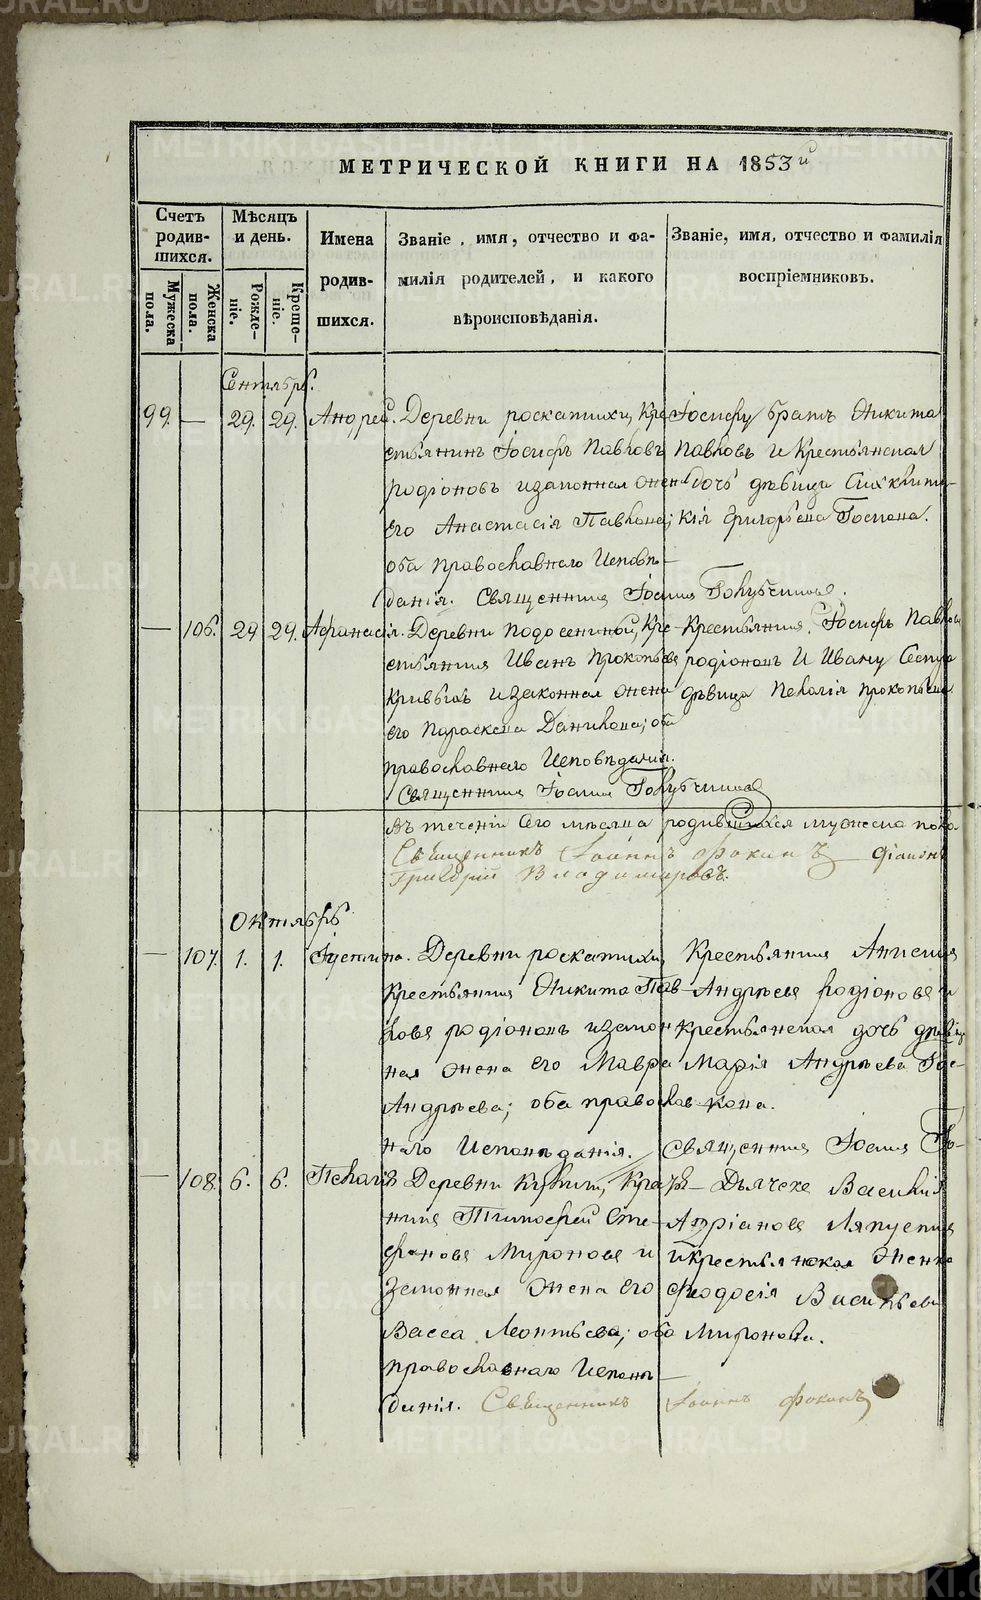 МЕТРИЧЕСКОЙ КНИГИ НА 1853й
Счетъ родившихся.
Мужеска пола.
Женска пола.
Мѣсяцъ и день.
Рожденіе.
Крещеніе.
Имена родившихся.
Званіе, имя, отчество и фамилія родителей, и какого вѣроисповѣданія.
Званіе, имя, отчество и фамилія воспріемниковъ.
Сентябрь.
99. — 29. 29. Андрей.
Деревни роскатихи, Кре-
стьянинъ Іосифъ Павловъ
родіоновъ и законная жена
его Анастасія Павлова;
оба православнаго Исповѣ-
данія. Священникъ Іоаннъ
Іосифу братъ Никита
Павловъ и Крестьянская
дочь дѣвица
кія Григорьева
— 106. 29 29. Афанасія.
Деревни Подосениной, Кре-
стьянинъ Иванъ Прокопьевъ
Кривыхъ и законная жена
его Параскева Данилова; оба
православнаго Исповѣданія.
Священникъ Іоаннъ
Крестьянинъ Іосифъ Павловъ
родіоновъ И Ивану Сестра
дѣвица Пелагія Прокопьева
Въ теченіи сего мѣсяца родившихся мужеска пола
Священникъ Іоаннъ Фокинъ
Григорій Владимировъ.
Октябрь
— 107. 1. 1. Іустина.
Деревни роскатихи,
Крестьянинъ Никита Пав-
ловъ родіоновъ и закон-
ная жена его Мавра
Андрѣева; оба православ-
наго Исповѣданія.
Крестьянинъ
Андрѣевъ Родіоновъ и
крестьянская дочь дѣвица
Марія Андрѣева
Священникъ Іоаннъ
— 108. 6. 6. Пелагія
Деревни
нинъ Тимофей Сте-
фановъ Мироновъ и
Законная жена его
Васса Леонтьева; оба
православнаго Исповѣ-
данія. Священникъ Іоаннъ Фокинъ
Дьячекъ Василій
Андріановъ Ляпустинъ
и крестьянская жена
Феодосія Васильева
Миронова.
METRIKI.GASO-URAL.RU